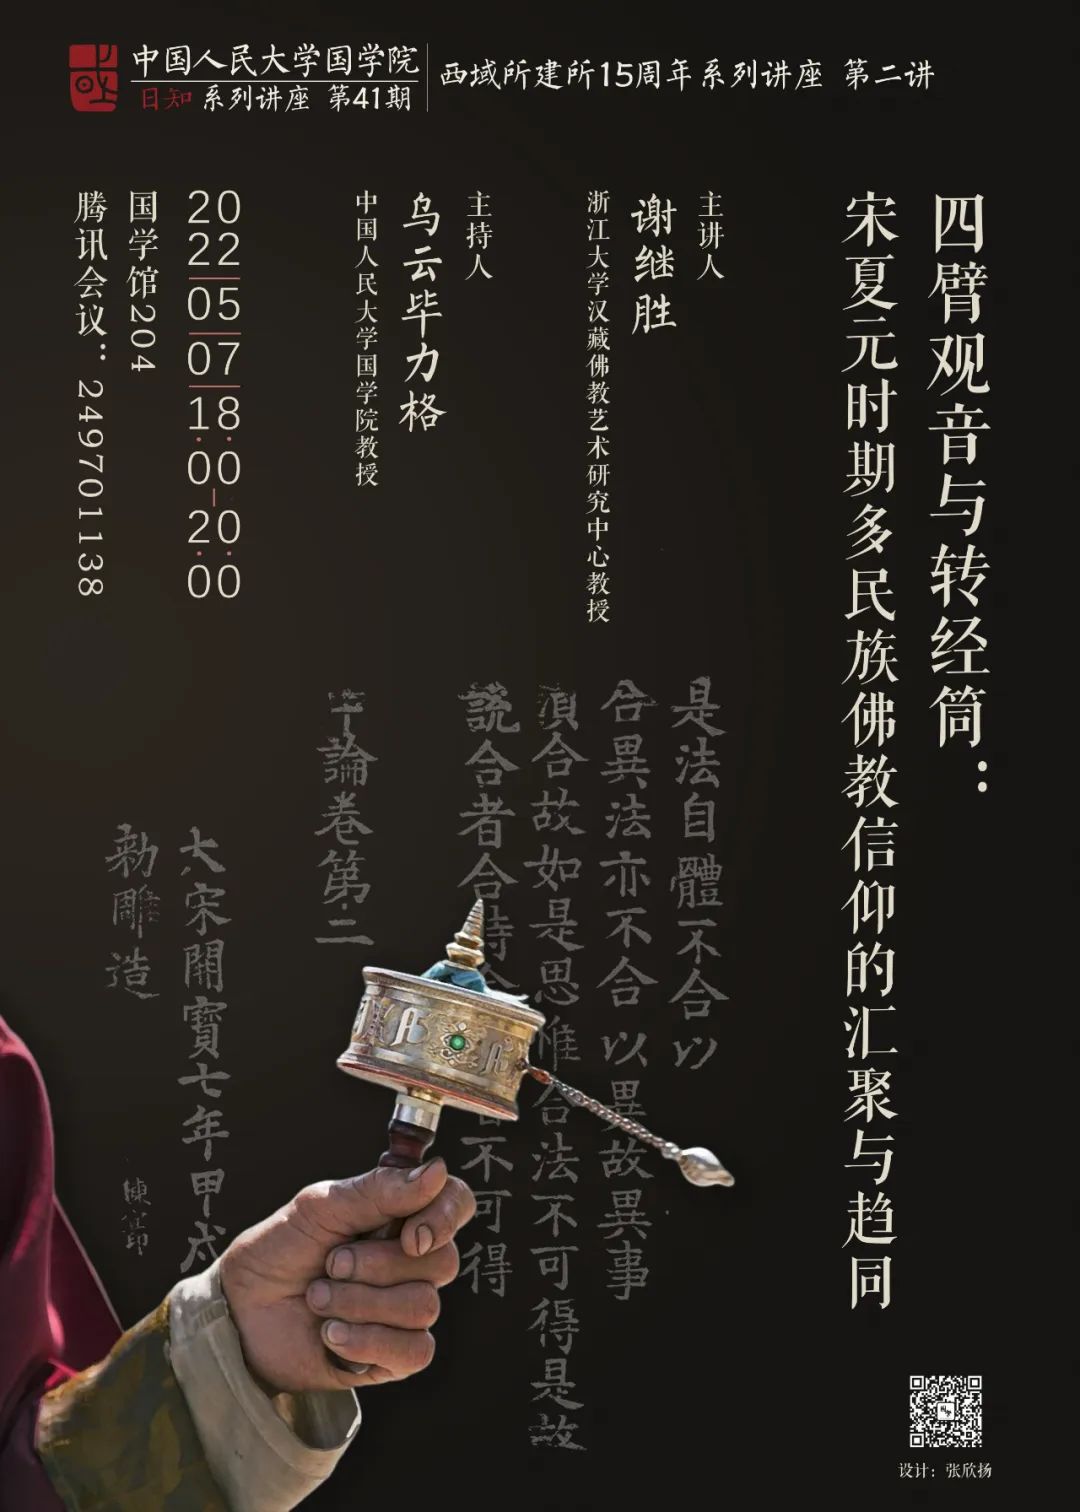 中国人民大学国学院
日知 系列讲座 第41期
西域所建所15周年系列讲座 第二讲
四臂观音与转经筒：
宋夏元时期多民族佛教信仰的汇聚与趋同
主讲人
谢继胜
浙江大学汉藏佛教艺术研究中心教授
主持人
乌云毕力格
中国人民大学国学院教授
2022
05
07
18:00-20:00
国学馆204
腾讯会议：249701138
是法自體不合以
合異法亦不合以異故異事
須合故如是思惟合法不可得是故
說合者合時合者不可得
中論卷第二
大宋開寶七年甲戌
勑雕造
设计：张欣扬